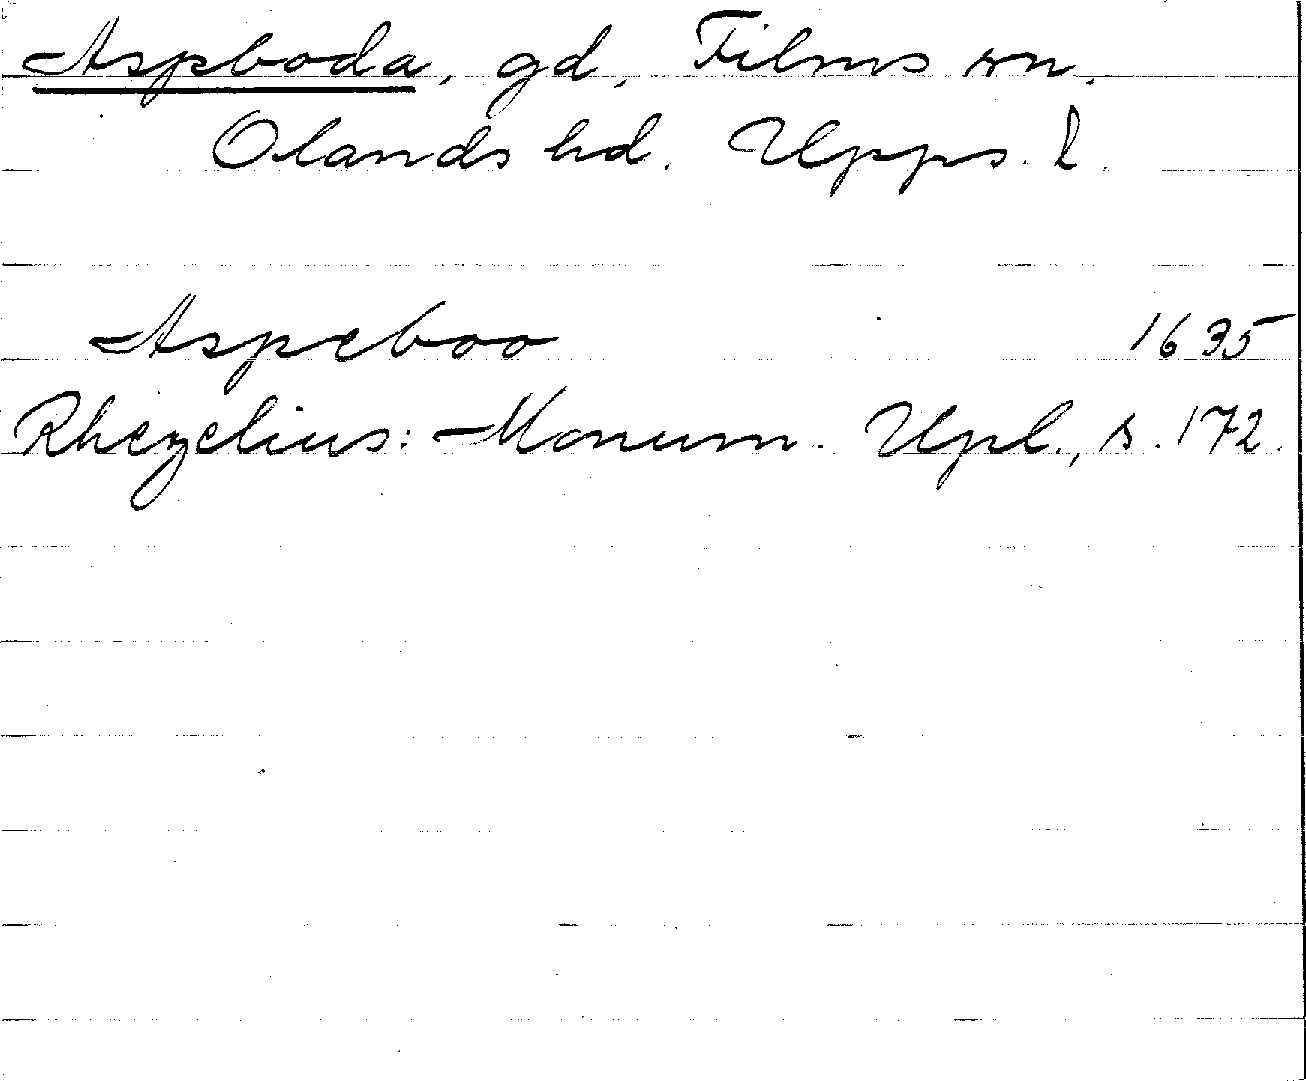 Aspboda, gd, Films sn,
Olands hd. Upps. l.
Aspeboo 1635
Rhezelius: Monum. Upl., s. 172.